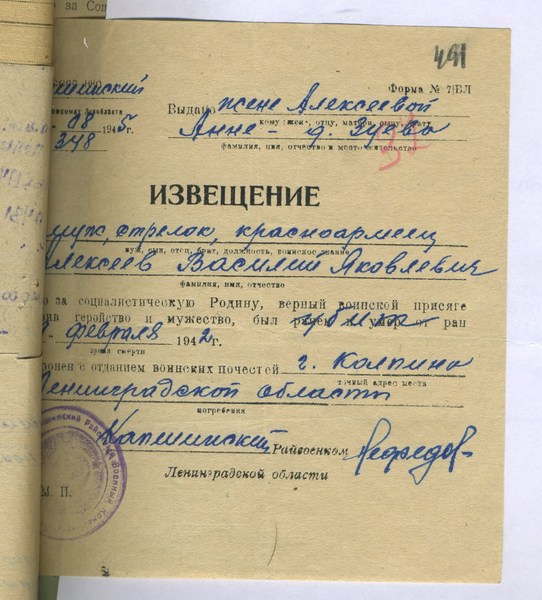 за Соц
491
Капшинский
Форма № 7/ВЛ
Выдано жене Алексеевой
08 1945г.
кому (жене, отцу, матери, сыну, брату)
348
Анне – д. Зуево
фамилия, имя, отчество и место жительство
32
ИЗВЕЩЕНИЕ
муж, стрелок, красноармеец
муж, сын, отец, брат, должность, воинское звание
Алексеев Василий Яковлевич
фамилия, имя, отчество
за социалистическую Родину, верный воинской присяге
ив геройство и мужество, был убит ранен и умер от ран
февраля 1942г.
время смерти
ронен с отданием воинских почестей г. Колпино
точный адрес места
Ленинградской области
погребения
Капшинский Райвоенком Нефедов
Ленинградской области
М. П.